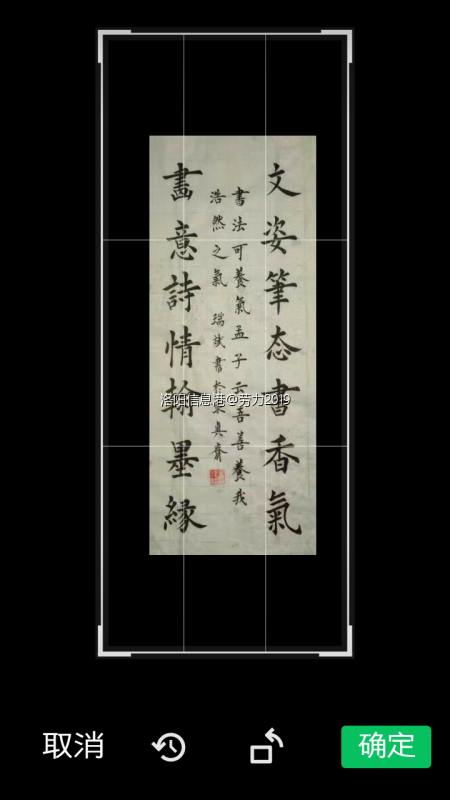 文姿筆态書香氣
書法可養氣孟子云吾善養我
浩然之氣 瑞斌書於 真齋
畫意詩情翰墨緣
洛阳信息港@劳力2919
取消
确定